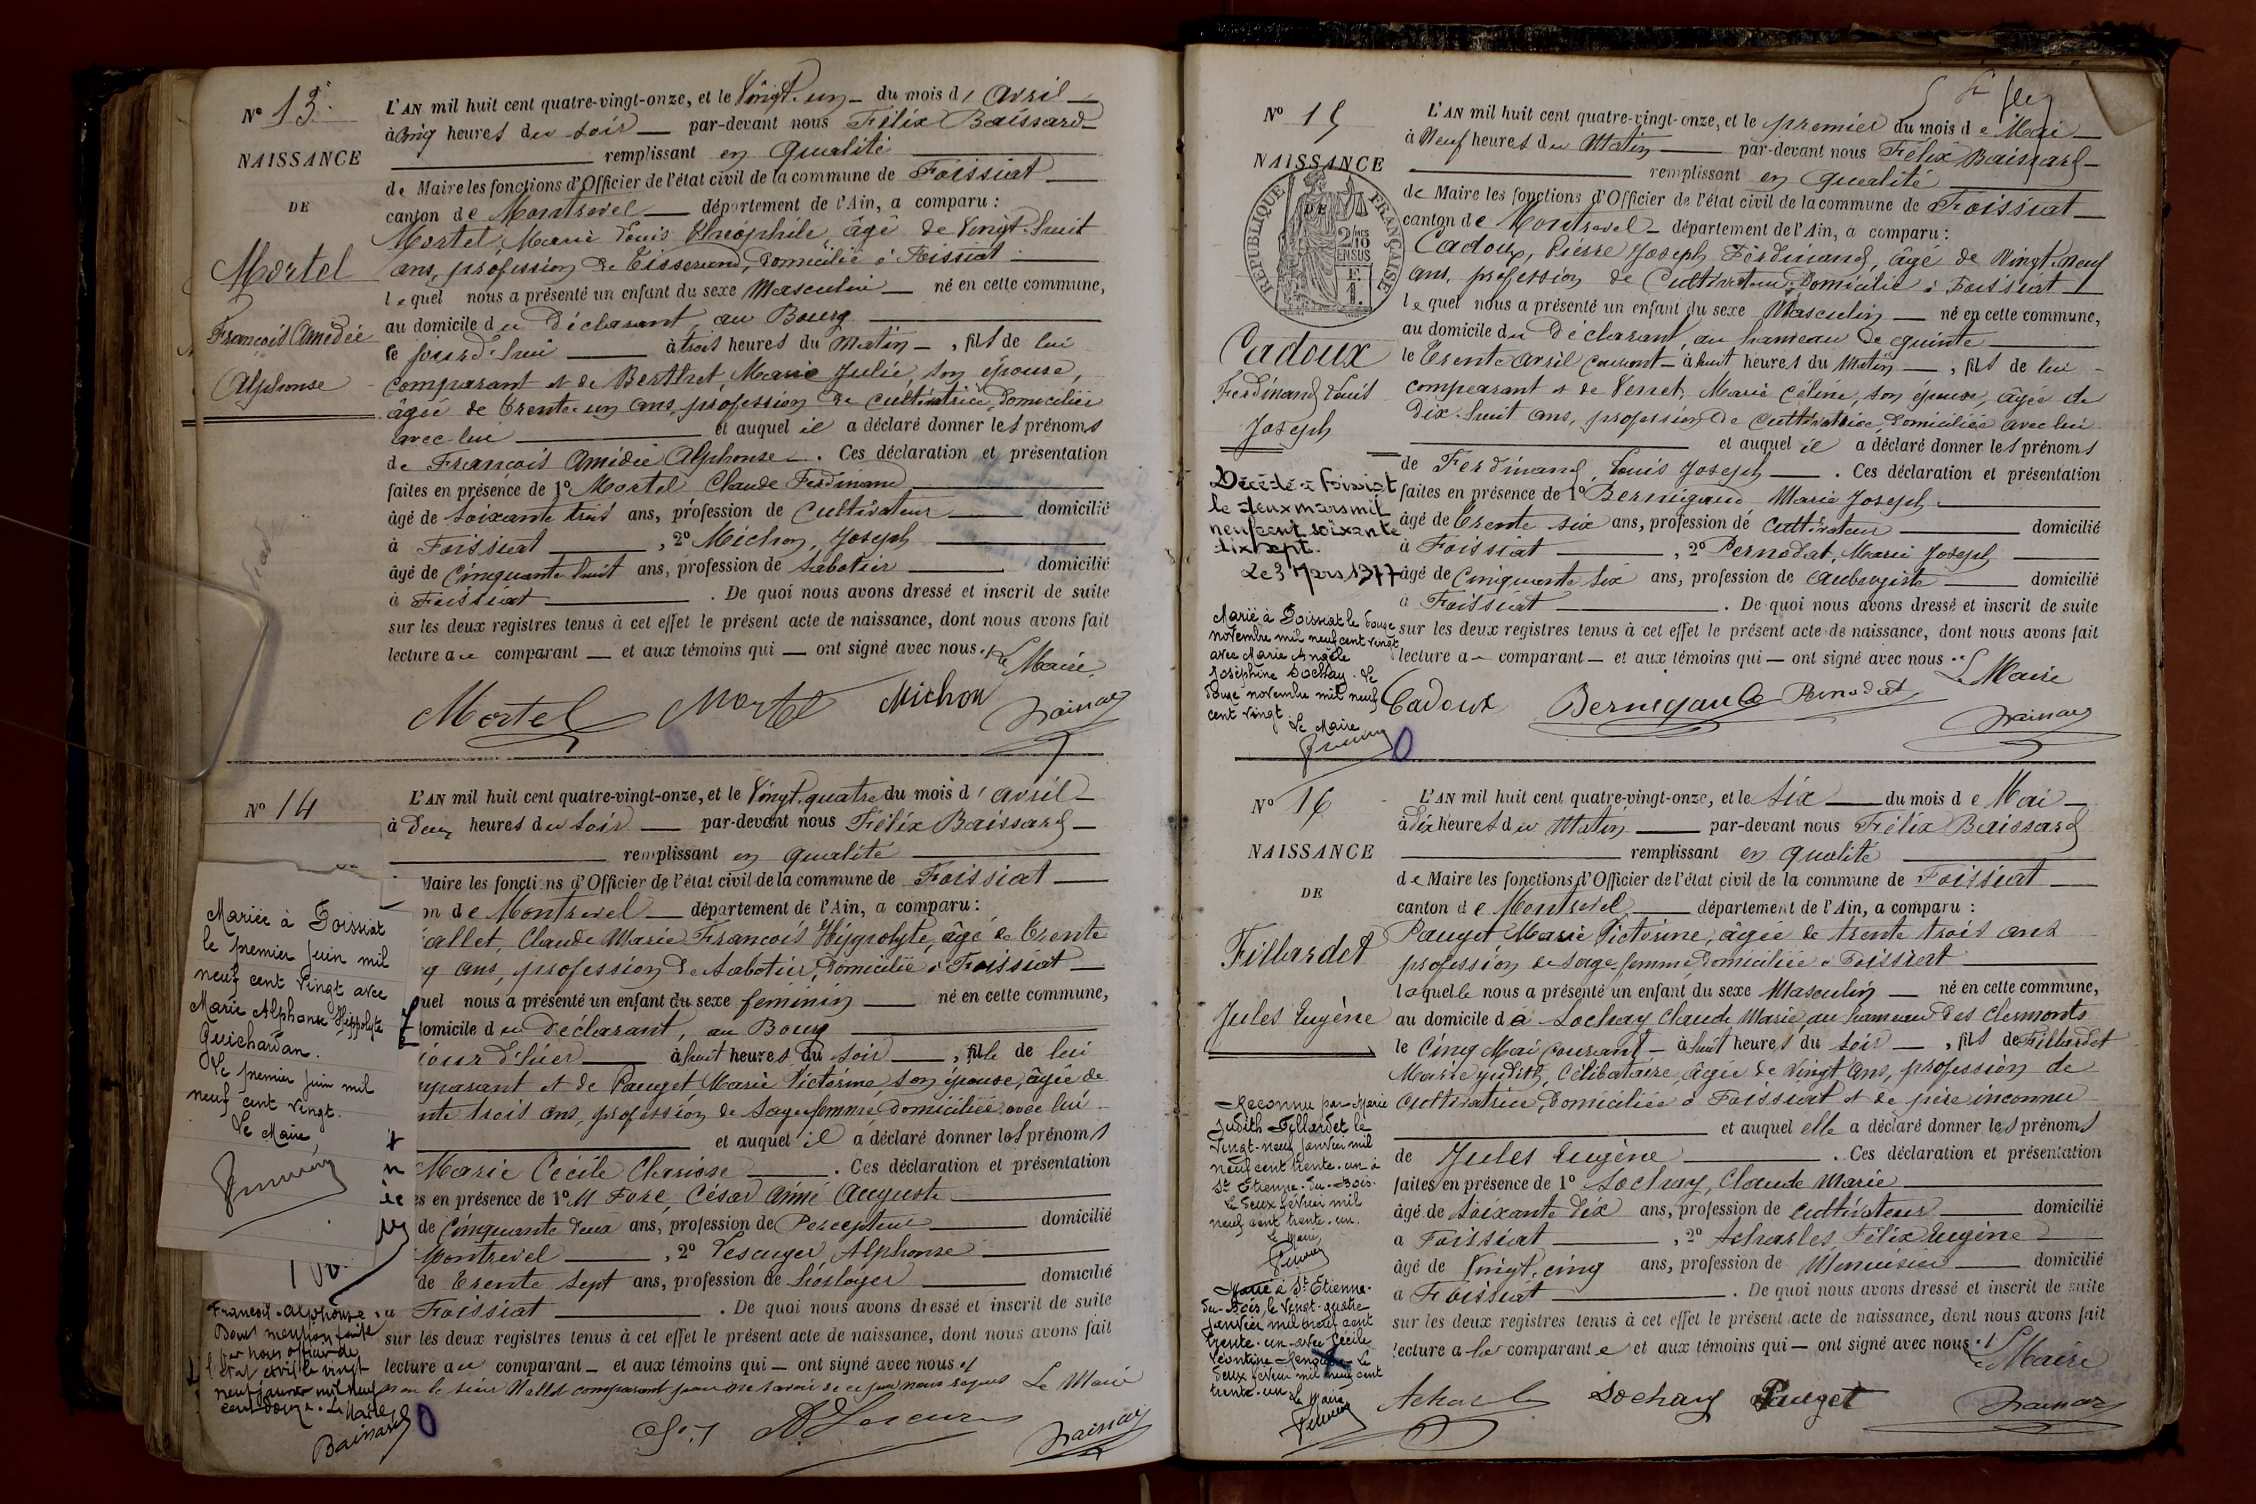 Nº 13.
NAISSANCE
DE
Mortel
François Amédée
Alphonse
L'AN mil huit cent quatre-vingt-onze, et le Vingt-un du mois d' Avril
à Cinq heures du soir par-devant nous Félix Baissard
remplissant en qualité
de Maire les fonctions d'Officier de l'état civil de la commune de Foissiat
canton de Montrevel département de l'Ain, a comparu :
Mortel, Marie Louis Théophile, âgé de Vingt-huit
ans, profession de Tisserand, domicilié à Foissiat
lequel nous a présenté un enfant du sexe Masculin né en cette commune,
au domicile du Déclarant, au Bourg
le jourd'hui à trois heures du Matin, fils de lui
comparant et de Berthet, Marie Julie, son épouse,
âgée de Trente un ans, profession de cultivatrice, domiciliée
avec lui et auquel il a déclaré donner les prénoms
de François Amédée Alphonse. Ces déclaration et présentation
faites en présence de 1º Mortel Claude Ferdinand
âgé de soixante trois ans, profession de Cultivateur domicilié
à Foissiat, 2º Michon, Joseph
âgé de Cinquante huit ans, profession de Sabotier domicilié
à Foissiat. De quoi nous avons dressé et inscrit de suite
sur les deux registres tenus à cet effet le présent acte de naissance, dont nous avons fait
lecture au comparant et aux témoins qui ont signé avec nous. Le Maire
Mortel Mortel Michon Baissard
Nº 14
Mariée à Foissiat
le premier juin mil
neuf cent vingt avec
Marie Alphonse Hippolyte
Guichardan.
Le premier juin mil
neuf cent vingt.
Le Maire,
François-Alphonse
Dont mention faite
par nous officier de
l'état civil le vingt
neuf janvier mil neuf
cent douze. Le Maire
Baissard
L'AN mil huit cent quatre-vingt-onze, et le Vingt-quatre du mois d' avril
à Deux heures du soir par-devant nous Félix Baissard
remplissant en qualité
Maire les fonctions d'Officier de l'état civil de la commune de Foissiat
on de Montrevel département de l'Ain, a comparu :
allet, Claude Marie François Hippolyte, âgé de Trente
q ans, profession de Sabotier, domicilié à Foissiat
quel nous a présenté un enfant du sexe féminin né en cette commune,
domicile du Déclarant, au Bourg
jour d'hier à huit heures du soir, fille de lui
mparant et de Pauget Marie Victorine, son épouse, âgée de
nte trois ans, profession de Sage femme, domiciliée avec lui
et auquel il a déclaré donner les prénoms
Marie Cécile Clarisse. Ces déclaration et présentation
es en présence de 1º M Fore, César Aimé Auguste
de Cinquante deux ans, profession de Percepteur domicilié
Montrevel, 2º Lesauger Alphonse
de Trente sept ans, profession de horloger domicilié
à Foissiat. De quoi nous avons dressé et inscrit de suite
sur les deux registres tenus à cet effet le présent acte de naissance, dont nous avons fait
lecture au comparant et aux témoins qui ont signé avec nous et
non le sieur Vallet comparant pour ne savoir de ce par nous requis Le Maire
Baissard
Nº 15
NAISSANCE
DE
RÉPUBLIQUE FRANÇAISE
2/10 EN SUS
Cadoux
Ferdinand Louis
Joseph
Décédé à Foissiat
le deux mars mil
neuf cent soixante
dix sept.
Le 3 Mars 1977
Marié à Foissiat le douze
novembre mil neuf cent vingt
avec Marie Angèle
Joséphine Sochay. Le
douze novembre mil neuf
cent vingt
Le Maire
L'AN mil huit cent quatre-vingt-onze, et le premier du mois de Mai
à Neuf heures du Matin par-devant nous Félix Baissard
remplissant en qualité
de Maire les fonctions d'Officier de l'état civil de la commune de Foissiat
canton de Montrevel département de l'Ain, a comparu :
Cadoux, Pierre Joseph Ferdinand, âgé de Vingt-neuf
ans, profession de Cultivateur, Domicilié à Foissiat
lequel nous a présenté un enfant du sexe Masculin né en cette commune,
au domicile du Déclarant, au hameau de quinte
le Trente avril courant à huit heures du Matin, fils de lui
comparant et de Verret, Marie Céline, son épouse, âgée de
Dix-huit ans, profession de cultivatrice, domiciliée avec lui
et auquel il a déclaré donner les prénoms
de Ferdinand, Louis Joseph. Ces déclaration et présentation
faites en présence de 1º Bernigaud Marie Joseph
âgé de Trente six ans, profession de Cultivateur domicilié
à Foissiat, 2º Pernodat, Marie Joseph
âgé de Cinquante Six ans, profession de Aubergiste domicilié
à Foissiat. De quoi nous avons dressé et inscrit de suite
sur les deux registres tenus à cet effet le présent acte de naissance, dont nous avons fait
lecture au comparant et aux témoins qui ont signé avec nous. Le Maire
Cadoux Bernigaud Pernodat Baissard
Nº 16
NAISSANCE
DE
Fillardet
Jules Eugène
Reconnu par Marie
Judith Fillardet le
vingt-neuf janvier mil
neuf cent trente-un à
St Etienne-du-Bois.
Le deux février mil
neuf cent trente-un.
Le Maire,
Marié à St Etienne-
du-Bois, le vingt-quatre
janvier mil neuf cent
trente-un avec Cécile
Léontine Le
deux février mil neuf cent
trente-un Le Maire
L'AN mil huit cent quatre-vingt-onze, et le Six du mois de Mai
à dix heures du Matin par-devant nous Félix Baissard
remplissant en qualité
de Maire les fonctions d'Officier de l'état civil de la commune de Foissiat
canton de Montrevel département de l'Ain, a comparu :
Pauget Marie Victorine, âgée de trente trois ans
profession de sage femme, domiciliée à Foissiat
laquelle nous a présenté un enfant du sexe Masculin né en cette commune,
au domicile de Sochay Claude Marie, au hameau des Clermonts
le Cinq Mai courant à huit heures du soir, fils de Fillardet
Marie Judith, Célibataire, âgée de Vingt ans, profession de
cultivatrice, Domiciliée à Foissiat et de père inconnu
et auquel elle a déclaré donner les prénoms
de Jules Eugène. Ces déclaration et présentation
faites en présence de 1º Sochay, Claude Marie
âgé de soixante dix ans, profession de cultivateur domicilié
à Foissiat, 2º Acharles Félix Eugène
âgé de Vingt-cinq ans, profession de Menuisier domicilié
à Foissiat. De quoi nous avons dressé et inscrit de suite
sur les deux registres tenus à cet effet le présent acte de naissance, dont nous avons fait
lecture a la comparante et aux témoins qui ont signé avec nous. Le Maire
Sochay Pauget Baissard